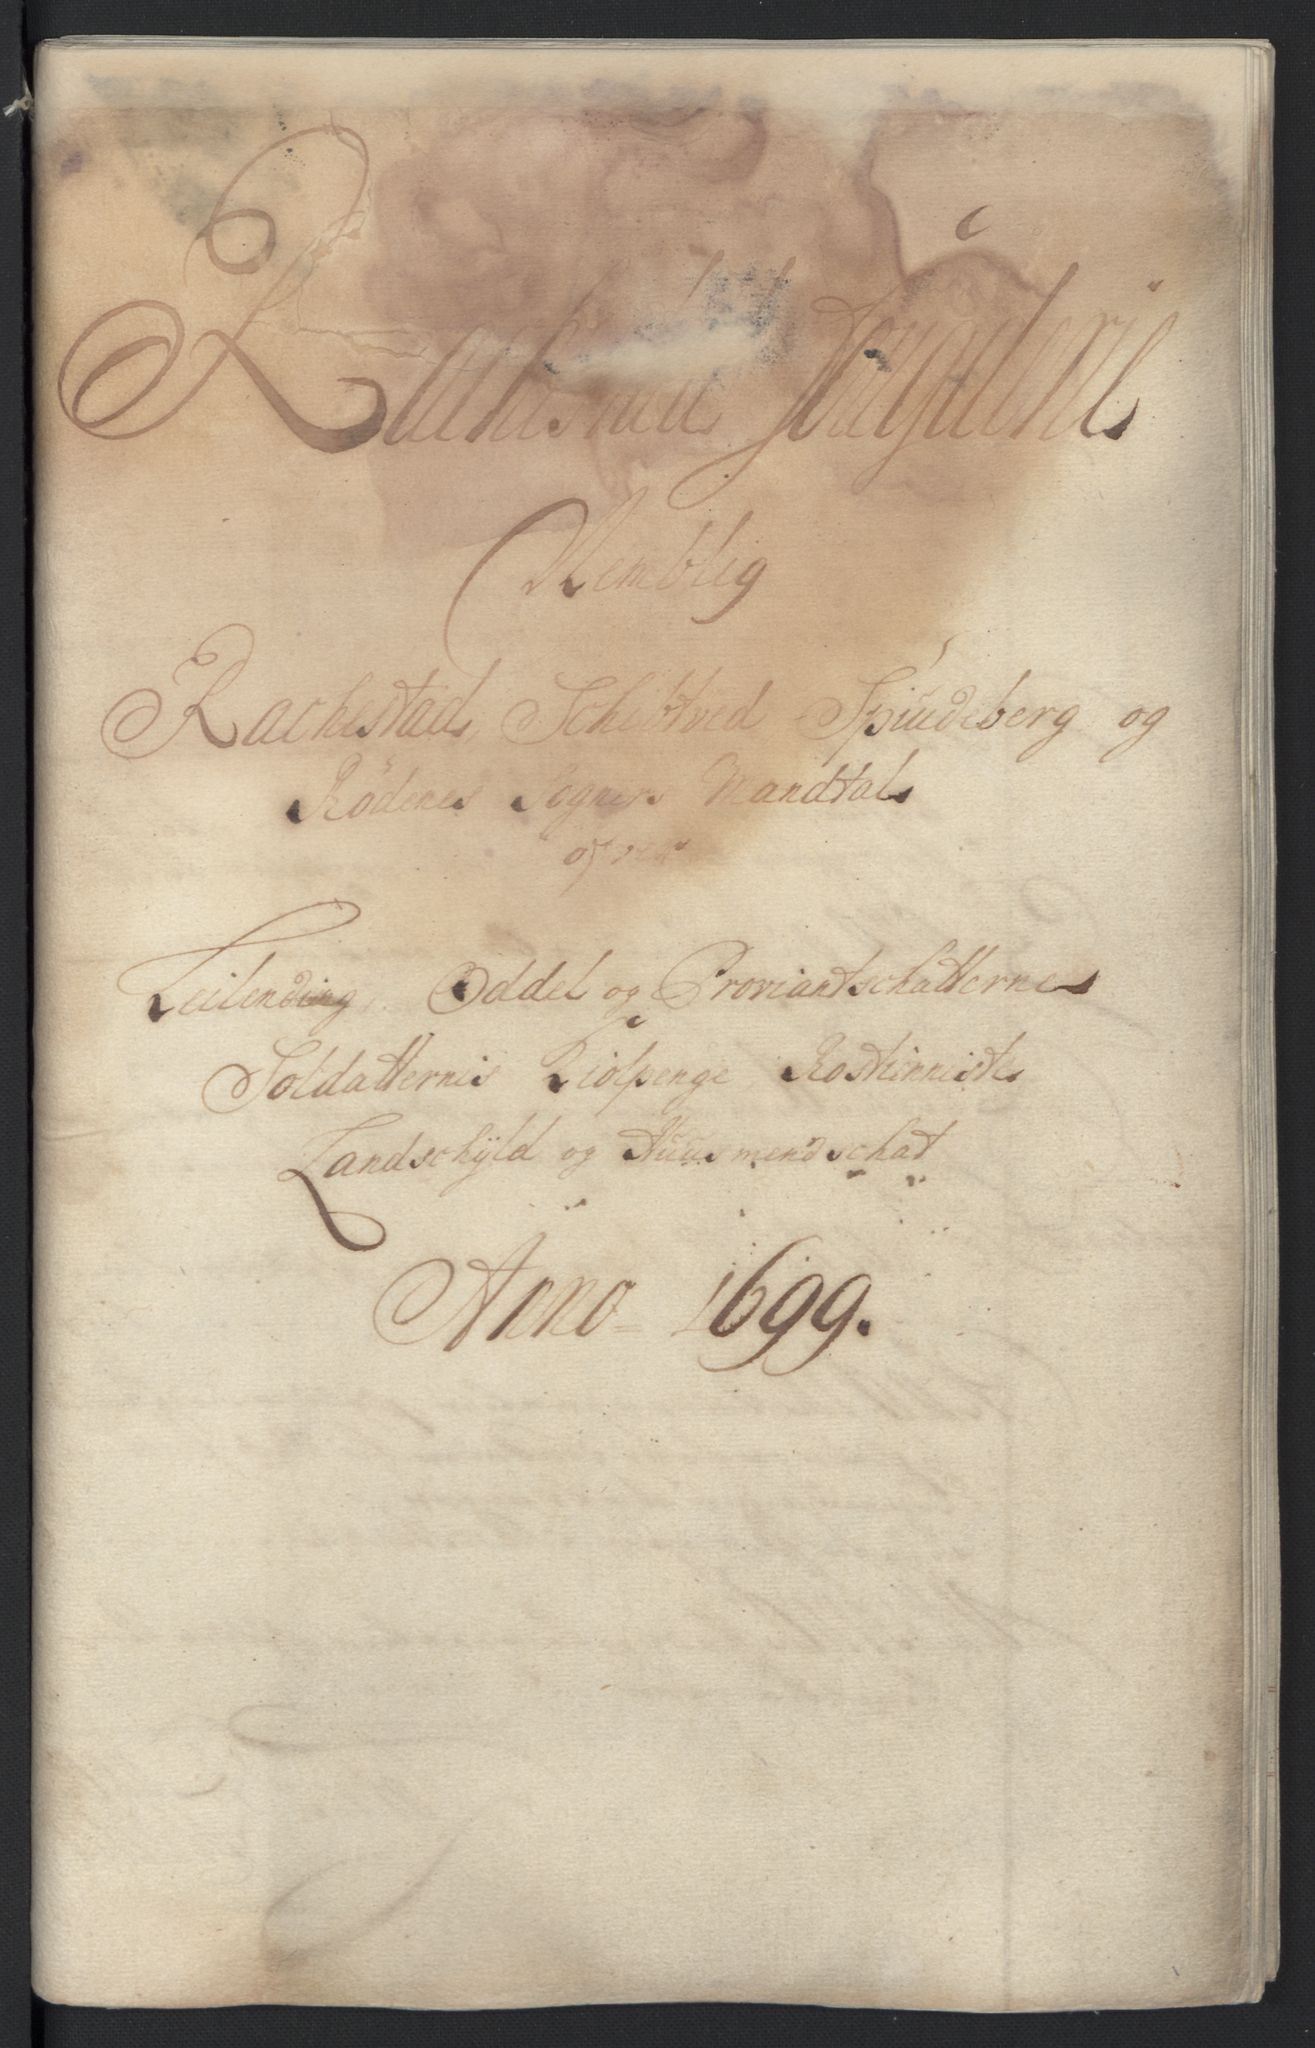 Rachestad Fougderie
Nemblig
Rachestad, Schibtved Spiudeberg og
Rødenes Sogners Mandtal
ofver
Leilending, Oddel og Proviantschatternes
Soldatternis Kiolpenge Rostienniste
Landschÿld og Huusmendschat
Anno 1699.